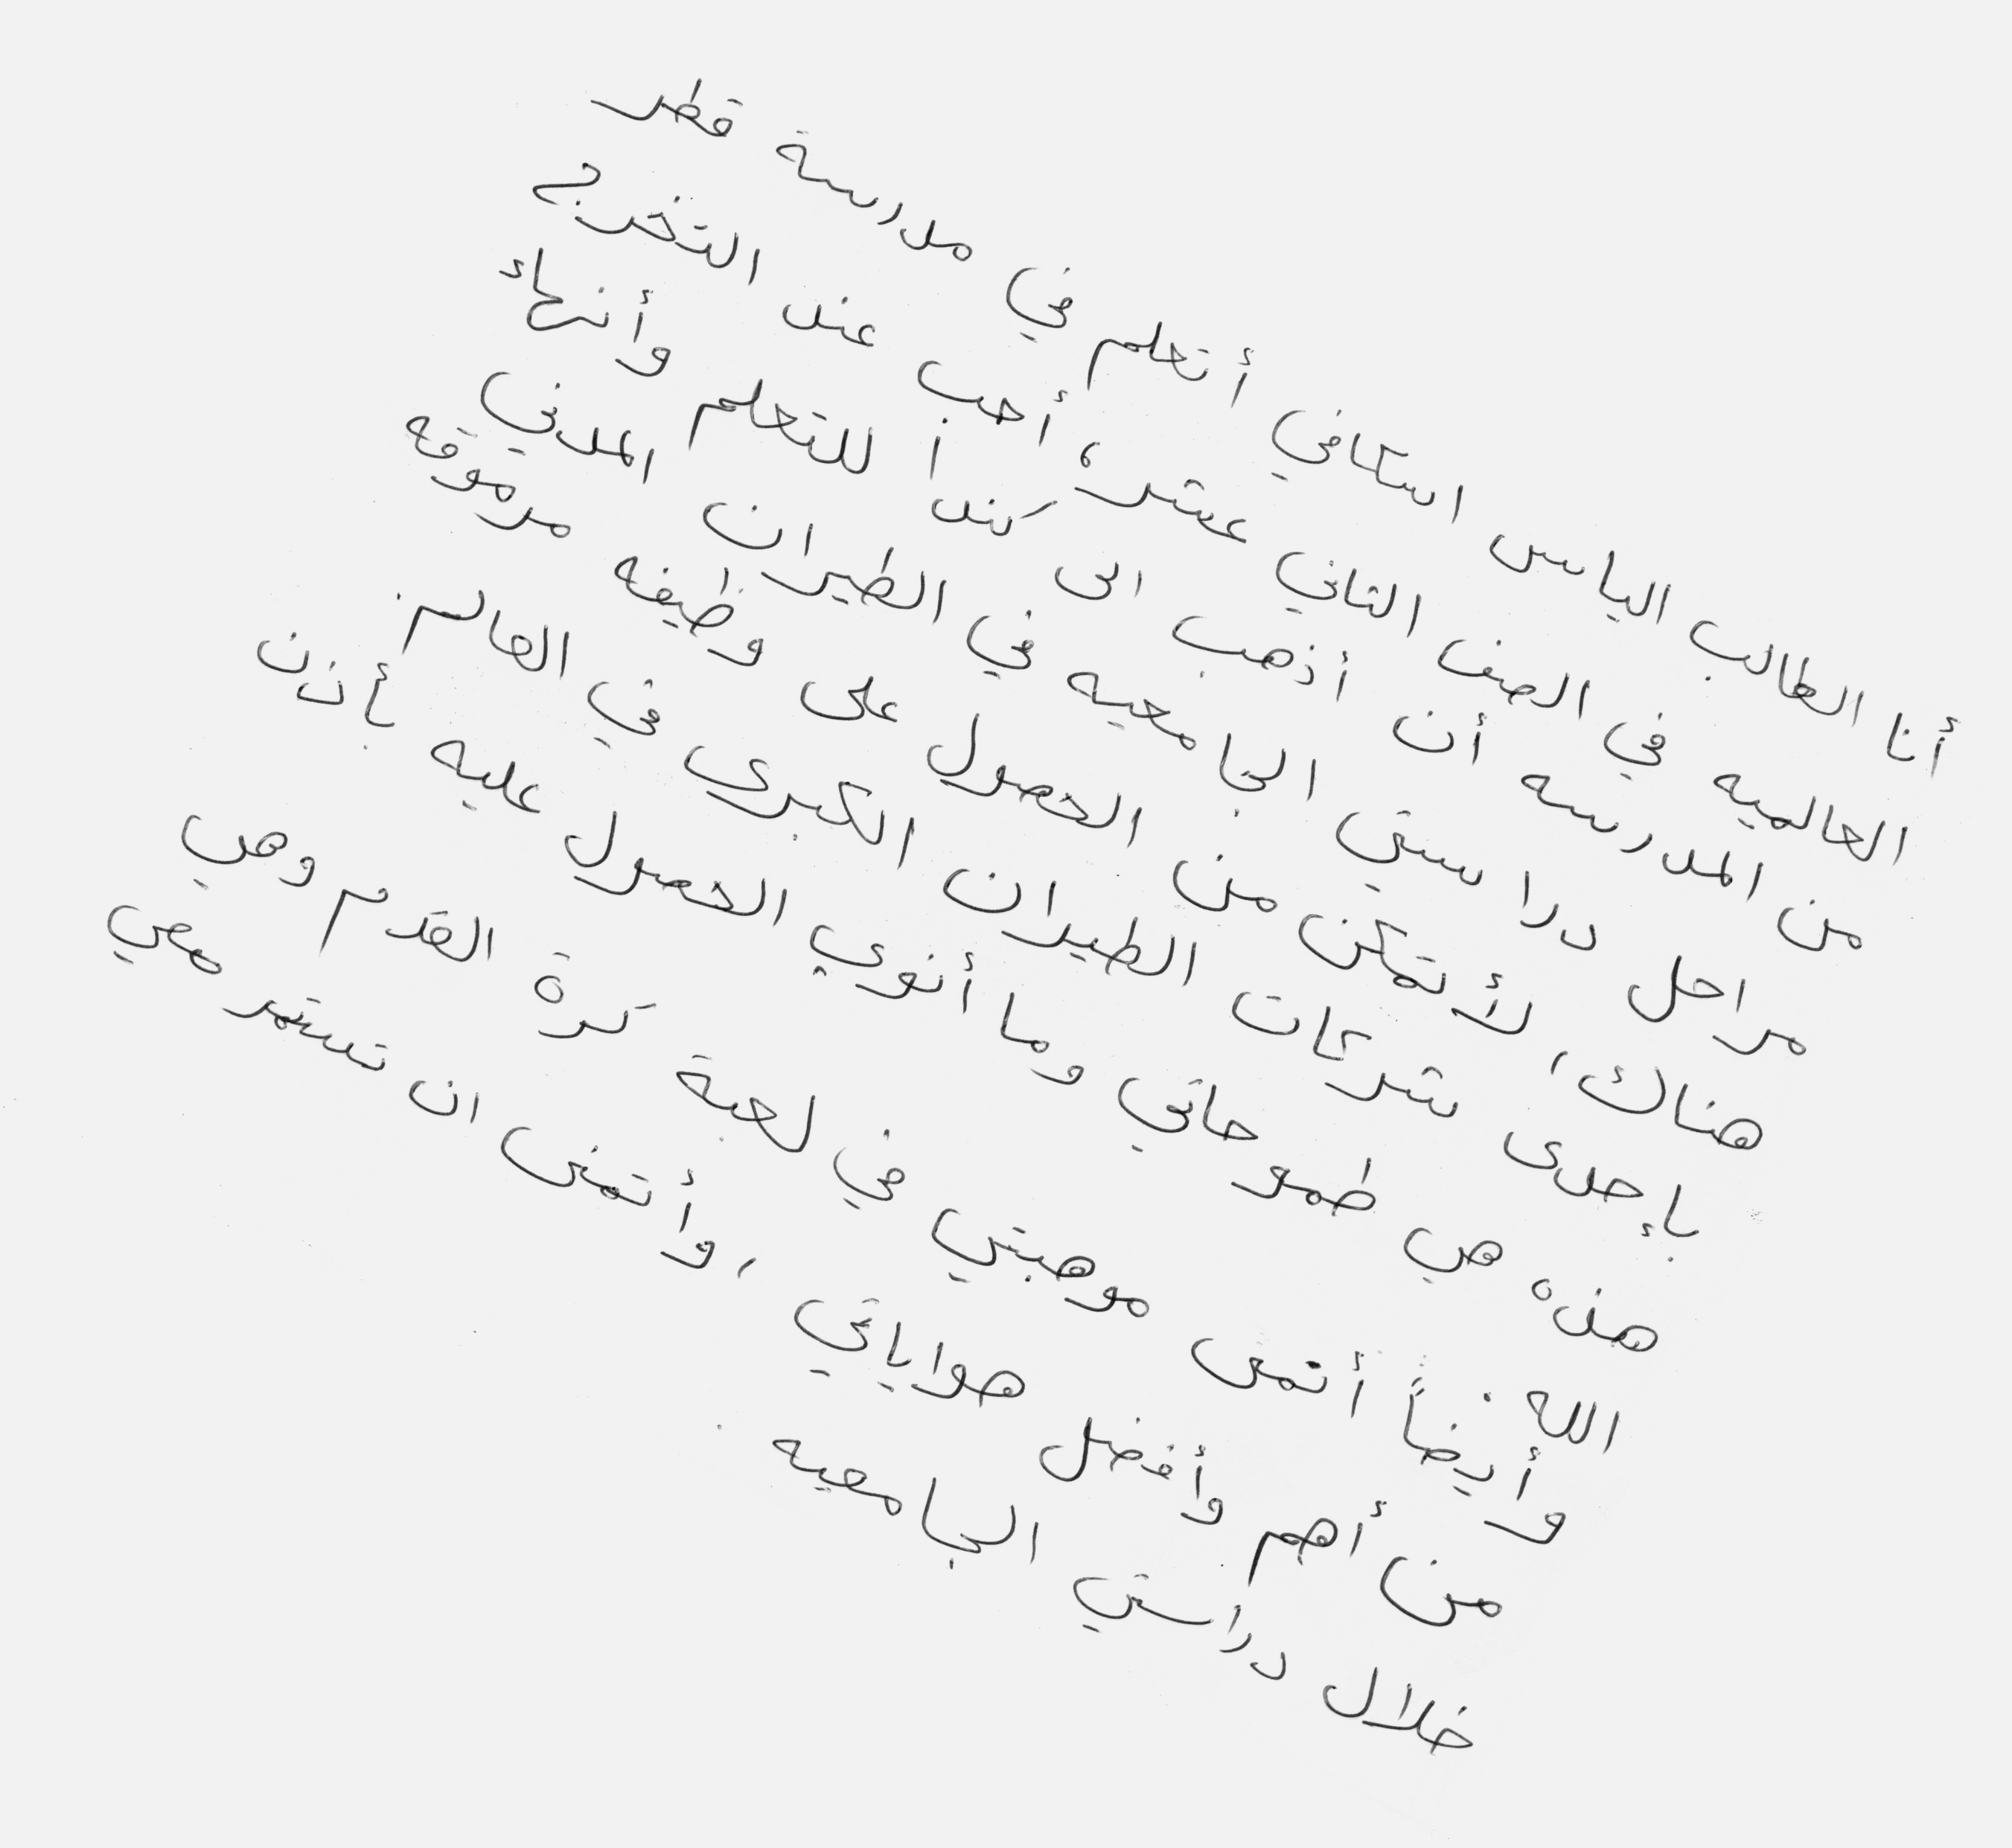 أنا الطالب الياس اسكافي أتعلم في مدرسة قطر
العالميه في الصف الثاني عشر، أحب عند التخرج
من المدرسه أن أذهب الى كندا للتعلم وأنهاء
مراحل دراستي الجامعيه في الطيران المدني
هناك، لأتمكن من الحصول على وظيفه مرموقه
بإحدى شركات الطيران الكبرى في العالم.
هذه هي طموحاتي وما أنوي الحصول عليه بأذن
الله.
وأيضاً أتمى موهبتي في لعبة كرة القدم وهي
من أهم وأفضل هواياتي ، وأتمنى ان تستمر معي
خلال دراستي الجامعيه .